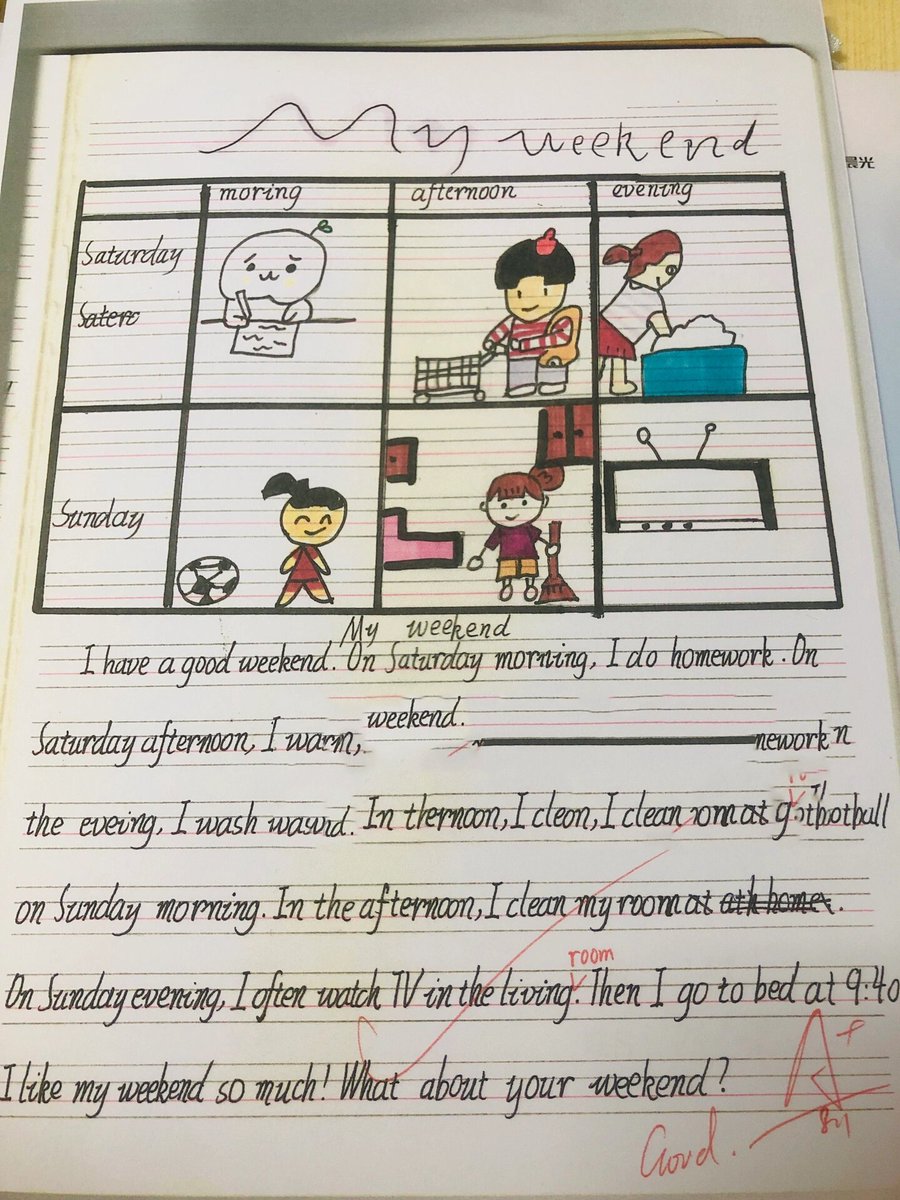 My weekend
晨光
moring afternoon evening
Saturday
Saterc
Sunday
My weekend
I have a good weekend. On Saturday morning, I do homework. On
weekend.
Saturday afternoon, I warm, nework n
the eveing, I wash In thernoon, I cleon, I clean at
on Sunday morning. In the afternoon, I clean my room at ath home.
room
On Sunday evening, I often watch TV in the living. Then I go to bed at 9:40
I like my weekend so much! What about your weekend?
A+
Good.